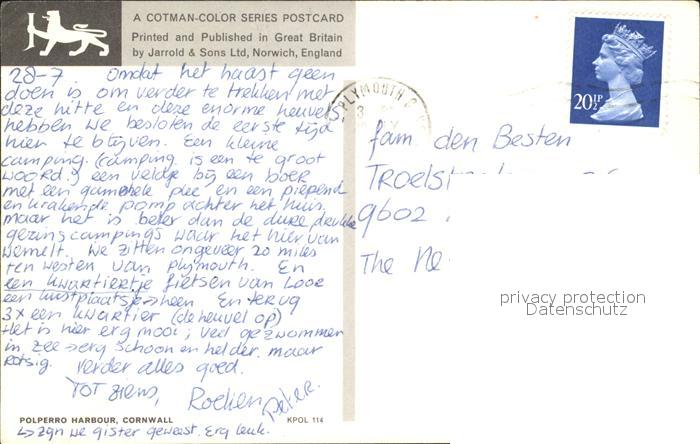 A COTMAN-COLOR SERIES POSTCARD
Printed and Published in Great Britain
by Jarrold & Sons Ltd, Norwich, England
28-7. Omdat het haast geen
doen is om verder te trekken met
deze hitte en deze enorme heuvels
hebben we besloten de eerste tijd
hier te blijven. Een kleine
camping. (camping is een te groot
woord.) een veldje bij een boer
met een gammele plee en een piepend
en krakende pomp achter het huis.
maar het is beter dan de dure drukke
gezinscampings waar het hier van
wemelt. We zitten ongeveer 20 miles
ten westen van Plymouth. En
een kwartiertje fietsen van Looe
een kustplaatsje → heen En terug
3x een kwartier (de heuvel op)
Het is hier erg mooi, veel gezwommen
in zee → erg schoon en helder. maar
rotsig. Verder alles goed.
Tot ziens, Roelien Peter.
POLPERRO HARBOUR, CORNWALL KPOL 114
↳ zijn we gister geweest. Erg leuk.
PLYMOUTH
20½P
fam. den Besten
9602
The Ne
privacy protection
Datenschutz